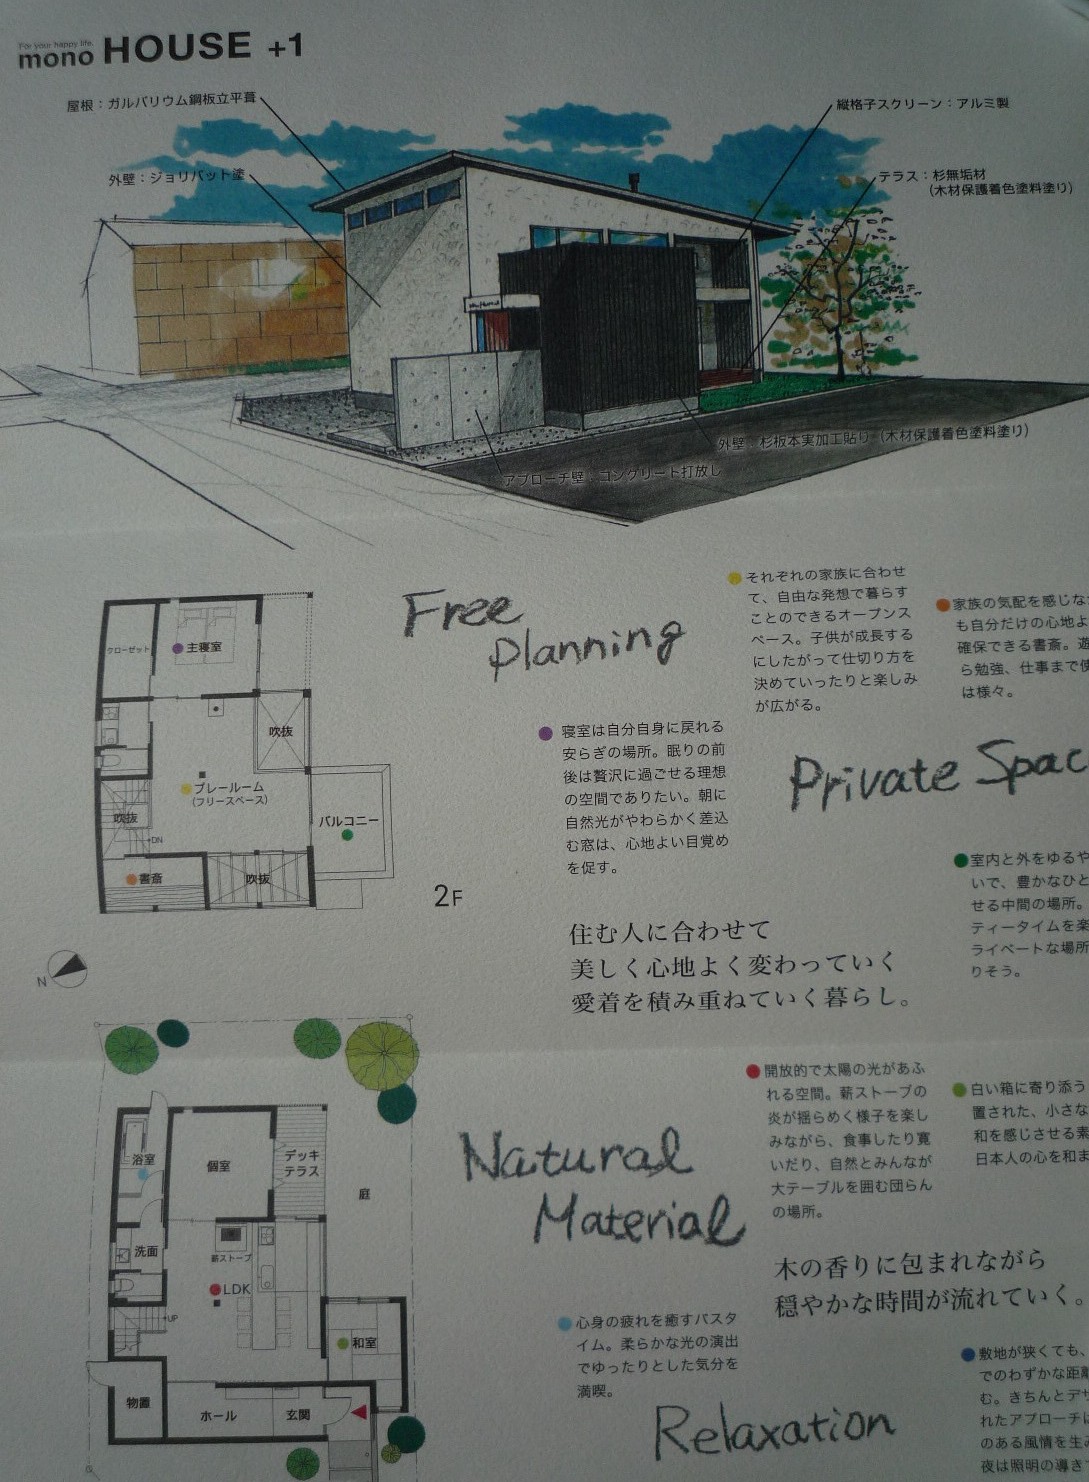 For your happy life.
mono HOUSE +1
屋根：ガルバリウム鋼板立平葺
縦格子スクリーン：アルミ製
外壁：ジョリパット塗
テラス：杉無垢材
（木材保護着色塗料塗り）
外壁：杉板本実加工貼り（木材保護着色塗料塗り）
アプローチ壁：コンクリート打放し
Free
planning
それぞれの家族に合わせ
て、自由な発想で暮らす
ことのできるオープンス
ペース。子供が成長する
にしたがって仕切り方を
決めていったりと楽しみ
が広がる。
家族の気配を感じな
も自分だけの心地よ
確保できる書斎。遊
ら勉強、仕事まで使
は様々。
クローゼット
主寝室
吹抜
プレールーム
（フリースペース）
吹抜
DN
バルコニー
書斎
吹抜
2F
寝室は自分自身に戻れる
安らぎの場所。眠りの前
後は贅沢に過ごせる理想
の空間でありたい。朝に
自然光がやわらかく差込
む窓は、心地よい目覚め
を促す。
Private Spac
室内と外をゆるや
いで、豊かなひと
せる中間の場所。
ティータイムを楽
ライベートな場所
りそう。
住む人に合わせて
美しく心地よく変わっていく
愛着を積み重ねていく暮らし。
N
浴室
個室
デッキ
テラス
庭
洗面
薪ストーブ
LDK
UP
和室
物置
ホール
玄関
Natural
Material
開放的で太陽の光があふ
れる空間。薪ストーブの
炎が揺らめく様子を楽し
みながら、食事したり寛
いだり、自然とみんなが
大テーブルを囲む団らん
の場所。
白い箱に寄り添う
置された、小さな
和を感じさせる素
日本人の心を和ま
木の香りに包まれながら
穏やかな時間が流れていく。
心身の疲れを癒すバスタ
イム。柔らかな光の演出
でゆったりとした気分を
満喫。
Relaxation
敷地が狭くても、
でのわずかな距離
む。きちんとデザ
れたアプローチに
のある風情を生み
夜は照明の導き